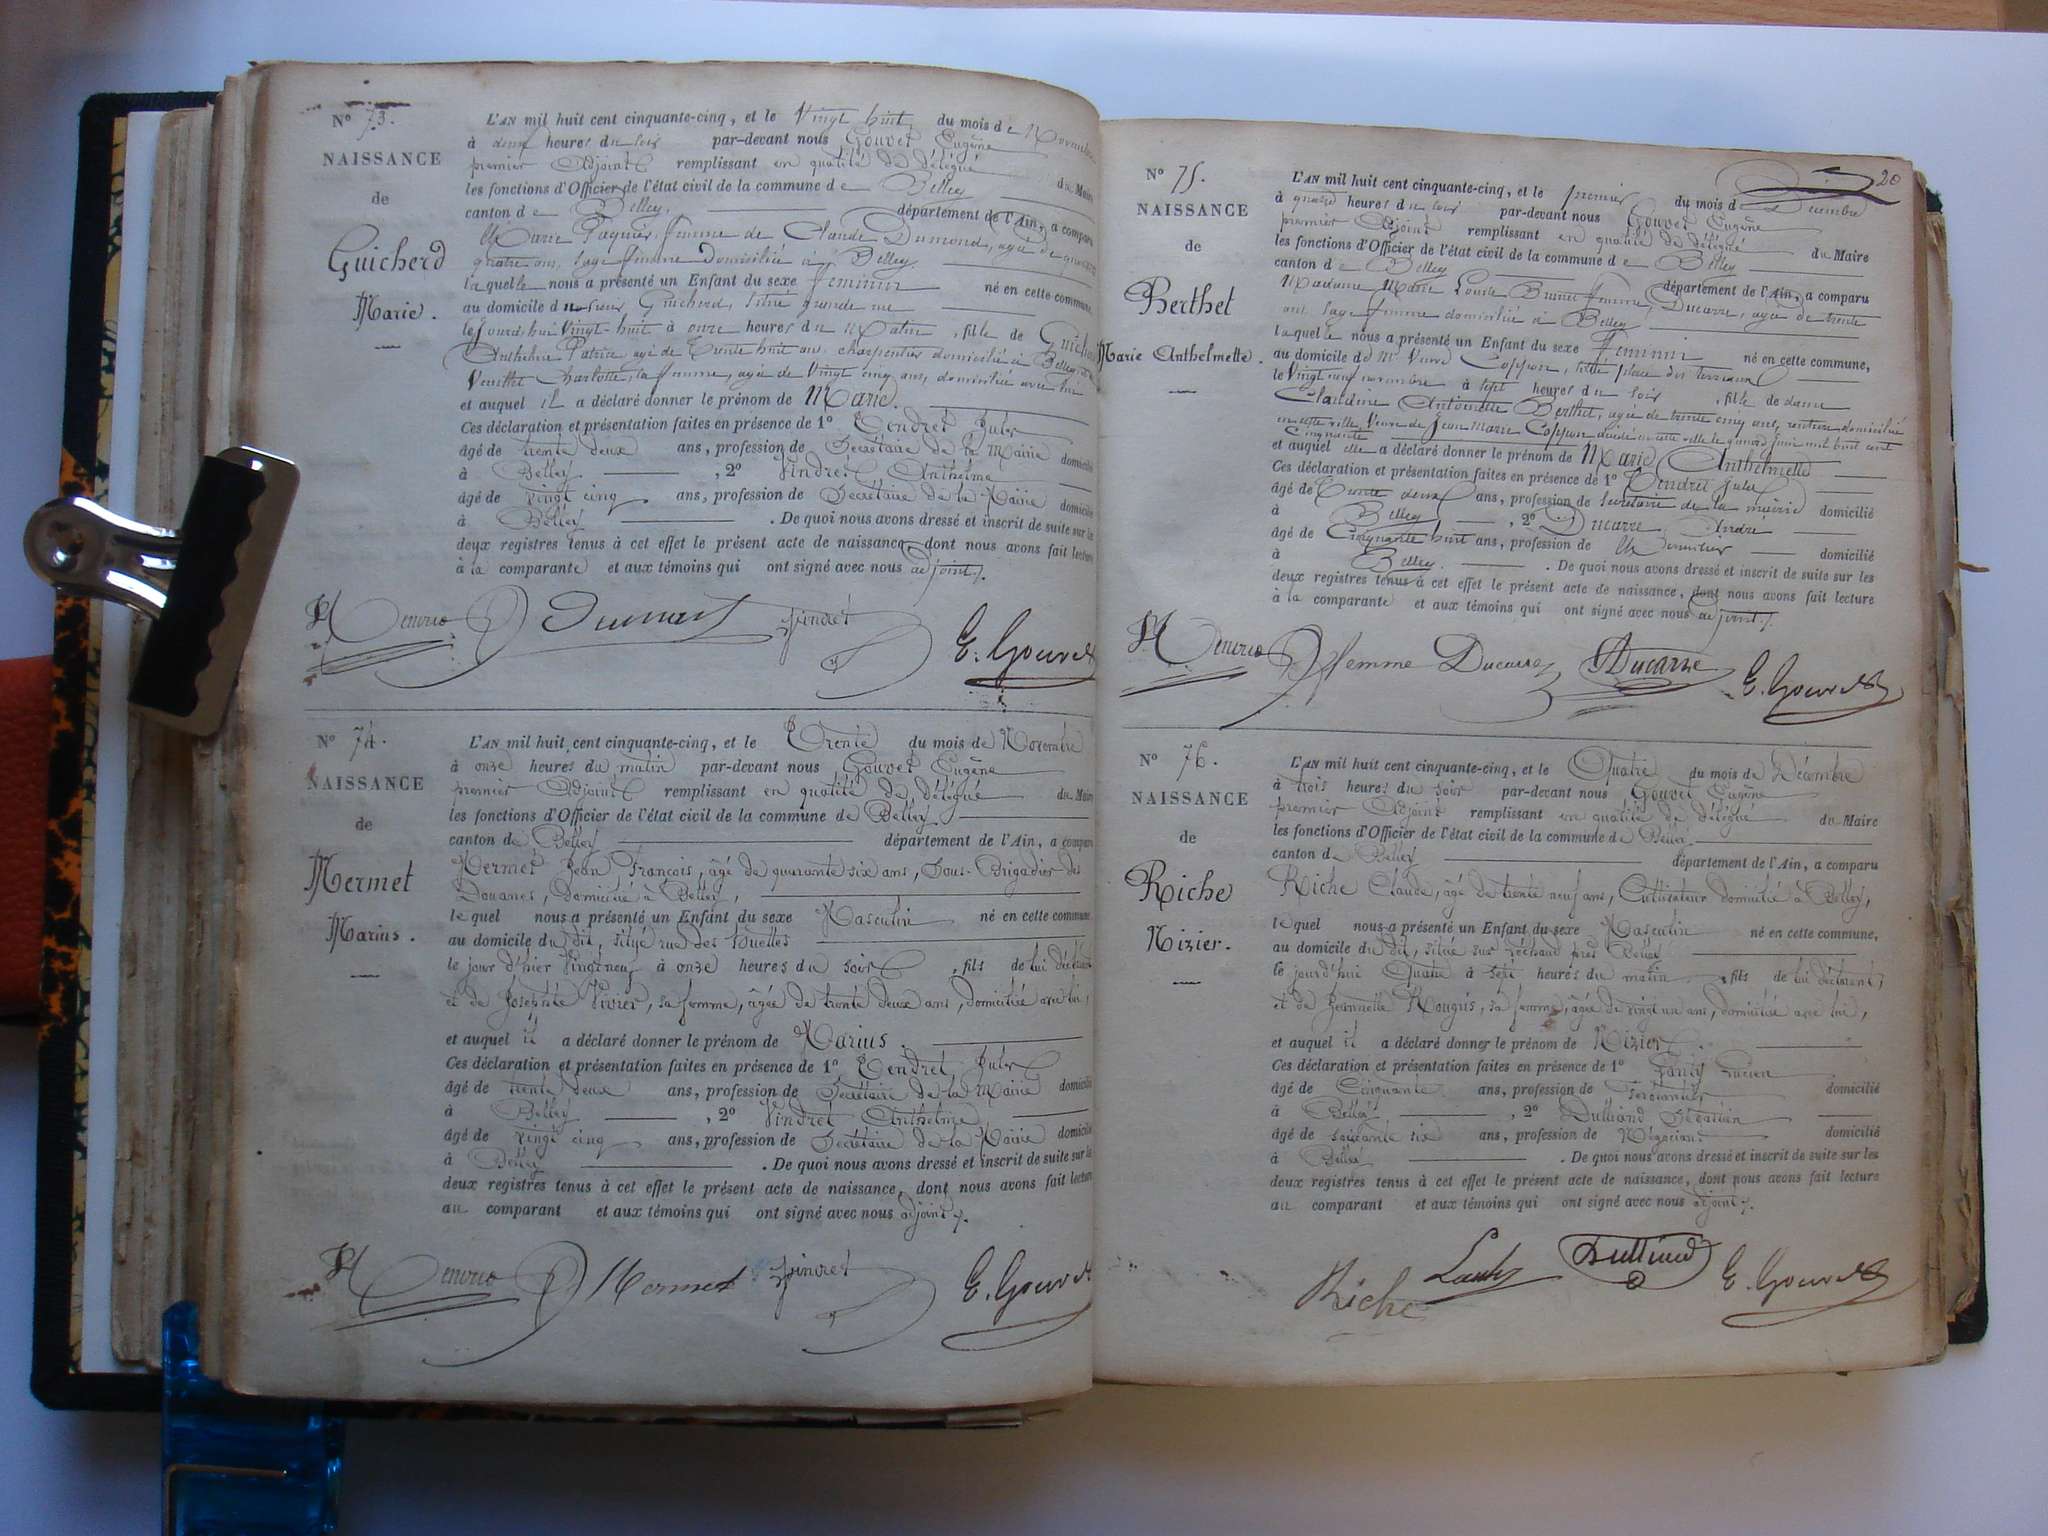 N° 73.
NAISSANCE
de
Guicherd
Marie.
L'AN mil huit cent cinquante-cinq, et le Vingt huit du mois de Novembre
à deux heures du soir par-devant nous Gouvet Eugène
premier Adjoint remplissant en qualité de délégué du Maire
les fonctions d'Officier de l'état civil de la commune de Belley
canton de Belley, département de l'Ain, a comparu
Marie Paquier, femme de Claude Dumond, agée de quarante
quatre ans, sage femme domiciliée à Belley
laquelle nous a présenté un Enfant du sexe feminin né en cette commune,
au domicile du sieur Guicherd, situé grande rue
le jourd'hui Vingt-huit à onze heures du Matin, fille de Guicherd
Anthelme Patrice agé de Trente huit ans, charpentier domicilié à Belley
Charlotte, sa femme, agée de Vingt cinq ans, domiciliée avec lui
et auquel il a déclaré donner le prénom de Marie.
Ces déclaration et présentation faites en présence de 1° Tendret Jules
âgé de trente deux ans, profession de Secrétaire de la Mairie domicilié
à Belley, 2° Vindret Anthelme
âgé de vingt cinq ans, profession de Secrétaire de la Mairie domicilié
à Belley. De quoi nous avons dressé et inscrit de suite sur les
deux registres tenus à cet effet le présent acte de naissance, dont nous avons fait lecture
à la comparante et aux témoins qui ont signé avec nous adjoint.
Vindret
E. Gouvet
N° 74.
NAISSANCE
de
Mermet
Marius.
L'AN mil huit cent cinquante-cinq, et le Trente du mois de Novembre
à onze heures du matin par-devant nous Gouvet Eugène
premier Adjoint remplissant en qualité de délégué du Maire
les fonctions d'Officier de l'état civil de la commune de Belley.
canton de Belley département de l'Ain, a comparu
Mermet Jean François, âgé de quarante six ans, Sous-Brigadier des
Douanes, domicilié à Belley,
lequel nous a présenté un Enfant du sexe Masculin né en cette commune
au domicile du dit, situé rue des Ruelles
le jour d'hier Vingt neuf à onze heures du soir, fils de lui déclarant
et de Josephte Vivier, sa femme, âgée de trente deux ans, domiciliée avec lui,
et auquel il a déclaré donner le prénom de Marius.
Ces déclaration et présentation faites en présence de 1° Tendret Jules
âgé de trente deux ans, profession de Secrétaire de la Mairie domicilié
à Belley, 2° Vindret Anthelme
âgé de vingt cinq ans, profession de Secrétaire de la Mairie domicilié
à Belley. De quoi nous avons dressé et inscrit de suite sur les
deux registres tenus à cet effet le présent acte de naissance, dont nous avons fait lecture
au comparant et aux témoins qui ont signé avec nous adjoint.
Mermet Vindret
E. Gouvet
20
N° 75.
NAISSANCE
de
Berthet
Marie Anthelmette.
L'AN mil huit cent cinquante-cinq, et le premier du mois de Décembre
à quatre heures du soir par-devant nous Gouvet Eugène
premier Adjoint remplissant en qualité de délégué du Maire
les fonctions d'Officier de l'état civil de la commune de Belley
canton de Belley département de l'Ain, a comparu
Madame Marie Louise Brunet femme, Ducarre, agée de trente
ans sage femme domiciliée à Belley
laquelle nous a présenté un Enfant du sexe Feminin né en cette commune,
au domicile de Mme Veuve Coppon, situé place des terreaux
le Vingt neuf novembre à sept heures du soir, fille de dame
Claudine Antoinette Berthet, agée de trente cinq ans, rentière domiciliée
en cette ville, Veuve de Jean Marie Coppon décédé en cette ville le quinze juin mil huit cent
cinquante
et auquel elle a déclaré donner le prénom de Marie Anthelmette
Ces déclaration et présentation faites en présence de 1° Tendret Jules
âgé de Trente deux ans, profession de Secrétaire de la mairie domicilié
à Belley, 2° Ducarre André
âgé de Cinquante huit ans, profession de Menuisier domicilié
à Belley. De quoi nous avons dressé et inscrit de suite sur les
deux registres tenus à cet effet le présent acte de naissance, dont nous avons fait lecture
à la comparante et aux témoins qui ont signé avec nous adjoint.
femme Ducarre Ducarre
E. Gouvet
N° 76.
NAISSANCE
de
Riche
Nizier.
L'AN mil huit cent cinquante-cinq, et le Quatre du mois de Décembre
à trois heures du soir par-devant nous Gouvet Eugène
premier Adjoint remplissant en qualité de délégué du Maire
les fonctions d'Officier de l'état civil de la commune de Belley.
canton de Belley département de l'Ain, a comparu
Riche Claude, âgé de trente neuf ans, Cultivateur domicilié à Belley,
lequel nous a présenté un Enfant du sexe Masculin né en cette commune,
au domicile du dit, situé sur Léchaud près Belley
le jourd'hui Quatre à sept heures du matin, fils de lui déclarant,
et de Jeannette Rougris, sa femme, âgée de vingt un ans, domiciliée avec lui,
et auquel il a déclaré donner le prénom de Nizier.
Ces déclaration et présentation faites en présence de 1° Lucien
âgé de Cinquante ans, profession de Ferblantier domicilié
à Belley, 2° Dulliand Sébastien
âgé de soixante six ans, profession de Négociant domicilié
à Belley. De quoi nous avons dressé et inscrit de suite sur les
deux registres tenus à cet effet le présent acte de naissance, dont nous avons fait lecture
au comparant et aux témoins qui ont signé avec nous adjoint.
Riche Dulliand E. Gouvet